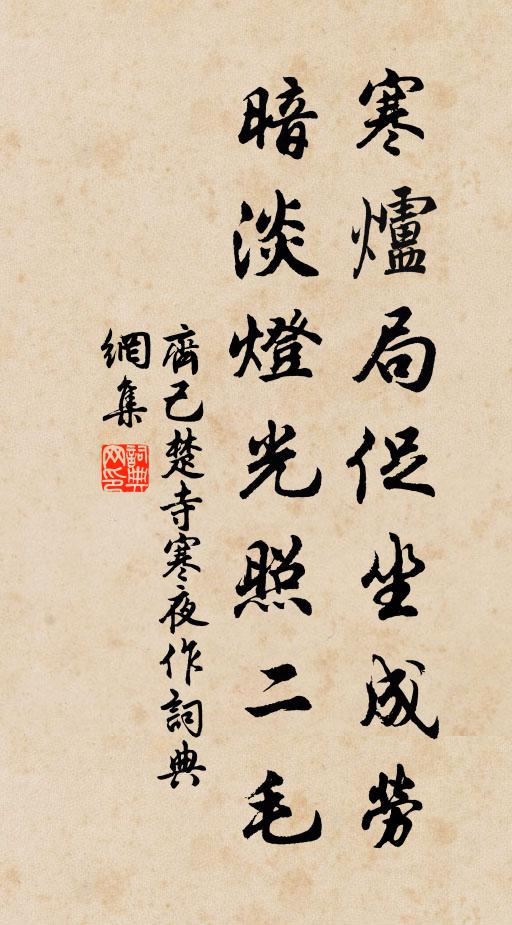 寒爐局促坐成勞
暗淡燈光照二毛
齊己楚寺寒夜作詞典
網集
詞典网印